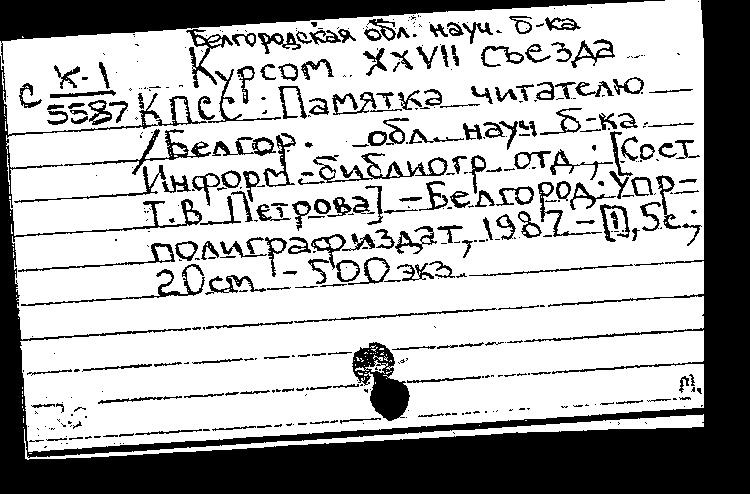 Белгородская обл. науч. б-ка
Курсом XXVII съезда
С К-1
5587
КПСС: Памятка читателю
/Белгор. обл. науч б-ка.
Информ.-библиогр. отд.; [Сост
Т.В. Петрова]. - Белгород: Упр-
полиграфиздат, 1987. - [1], 5с.;
20 см - 500 экз.
м.